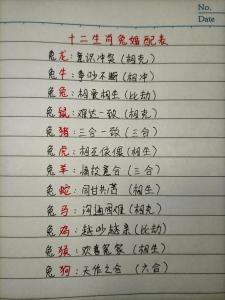 No.
Date
十二生肖兔婚配表
兔龙:意识冲突(相克)
兔牛:争吵不断(相冲)
兔兔:相爱相生(比劫)
兔鼠:难达一致(相克)
兔猪:三合一致(三合)
兔虎:相互依偎(相生)
兔羊:情投意合(三合)
兔蛇:同甘共苦(相生)
兔马:沟通困难(相克)
兔鸡:越吵越亲(比劫)
兔猴:欢喜冤家(相生)
兔狗:天作之合(六合)